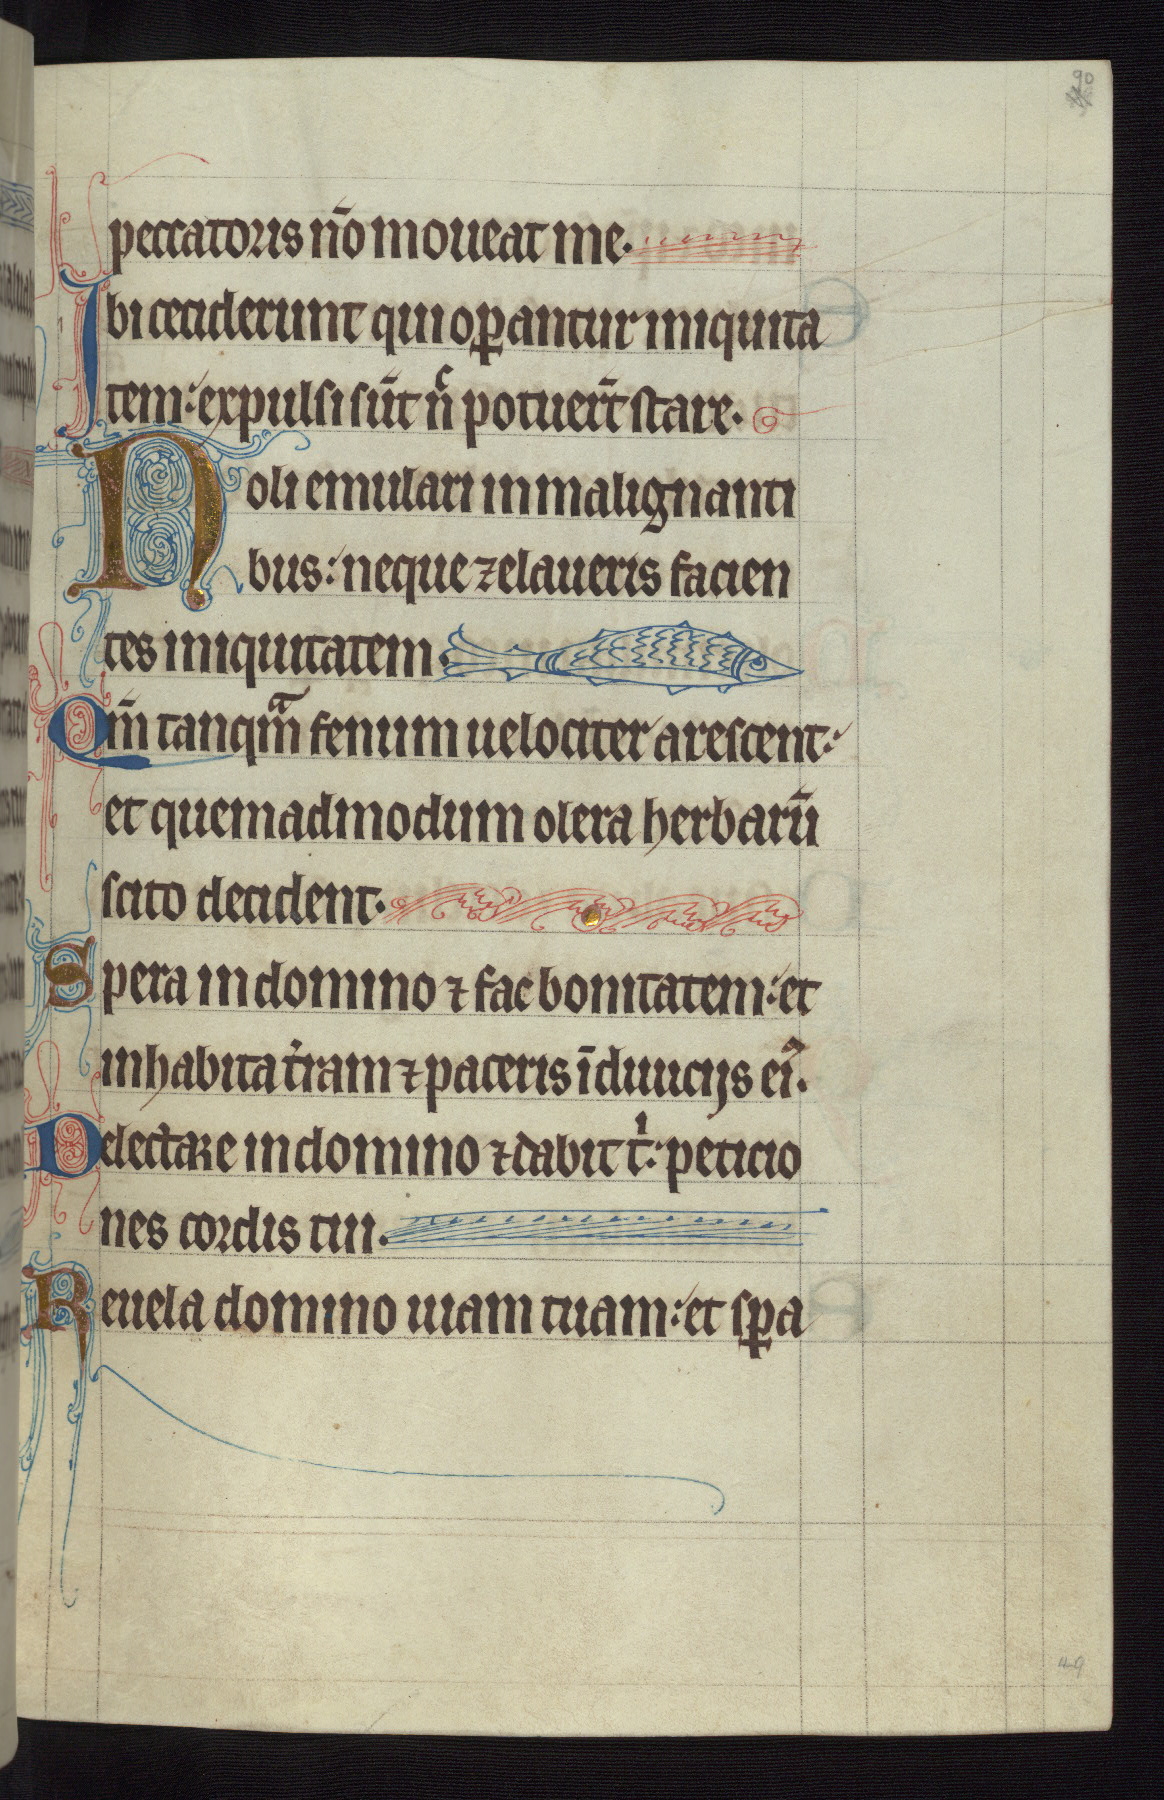 90
peccatoris nō moueat me.
Ibi ceciderunt qui oꝑantur iniquita
tem: expulsi sūt nͨ potuerūt stare.
Noli emulari in malignanti
bus: neque zelaueris facien
tes iniquitatem.
Qm̄ tanqͣm fenum uelociter arescent:
et quemadmodum olera herbarū
scito decident.
Spera in domino ⁊ fac bonitatem: et
inhabita t̄ram ⁊ pasceris ī diuicijs eiꝰ.
Delectare in domino ⁊ dabit tͥ: peticio
nes cordis tui.
Reuela domino uiam tuam: et sꝑa
49